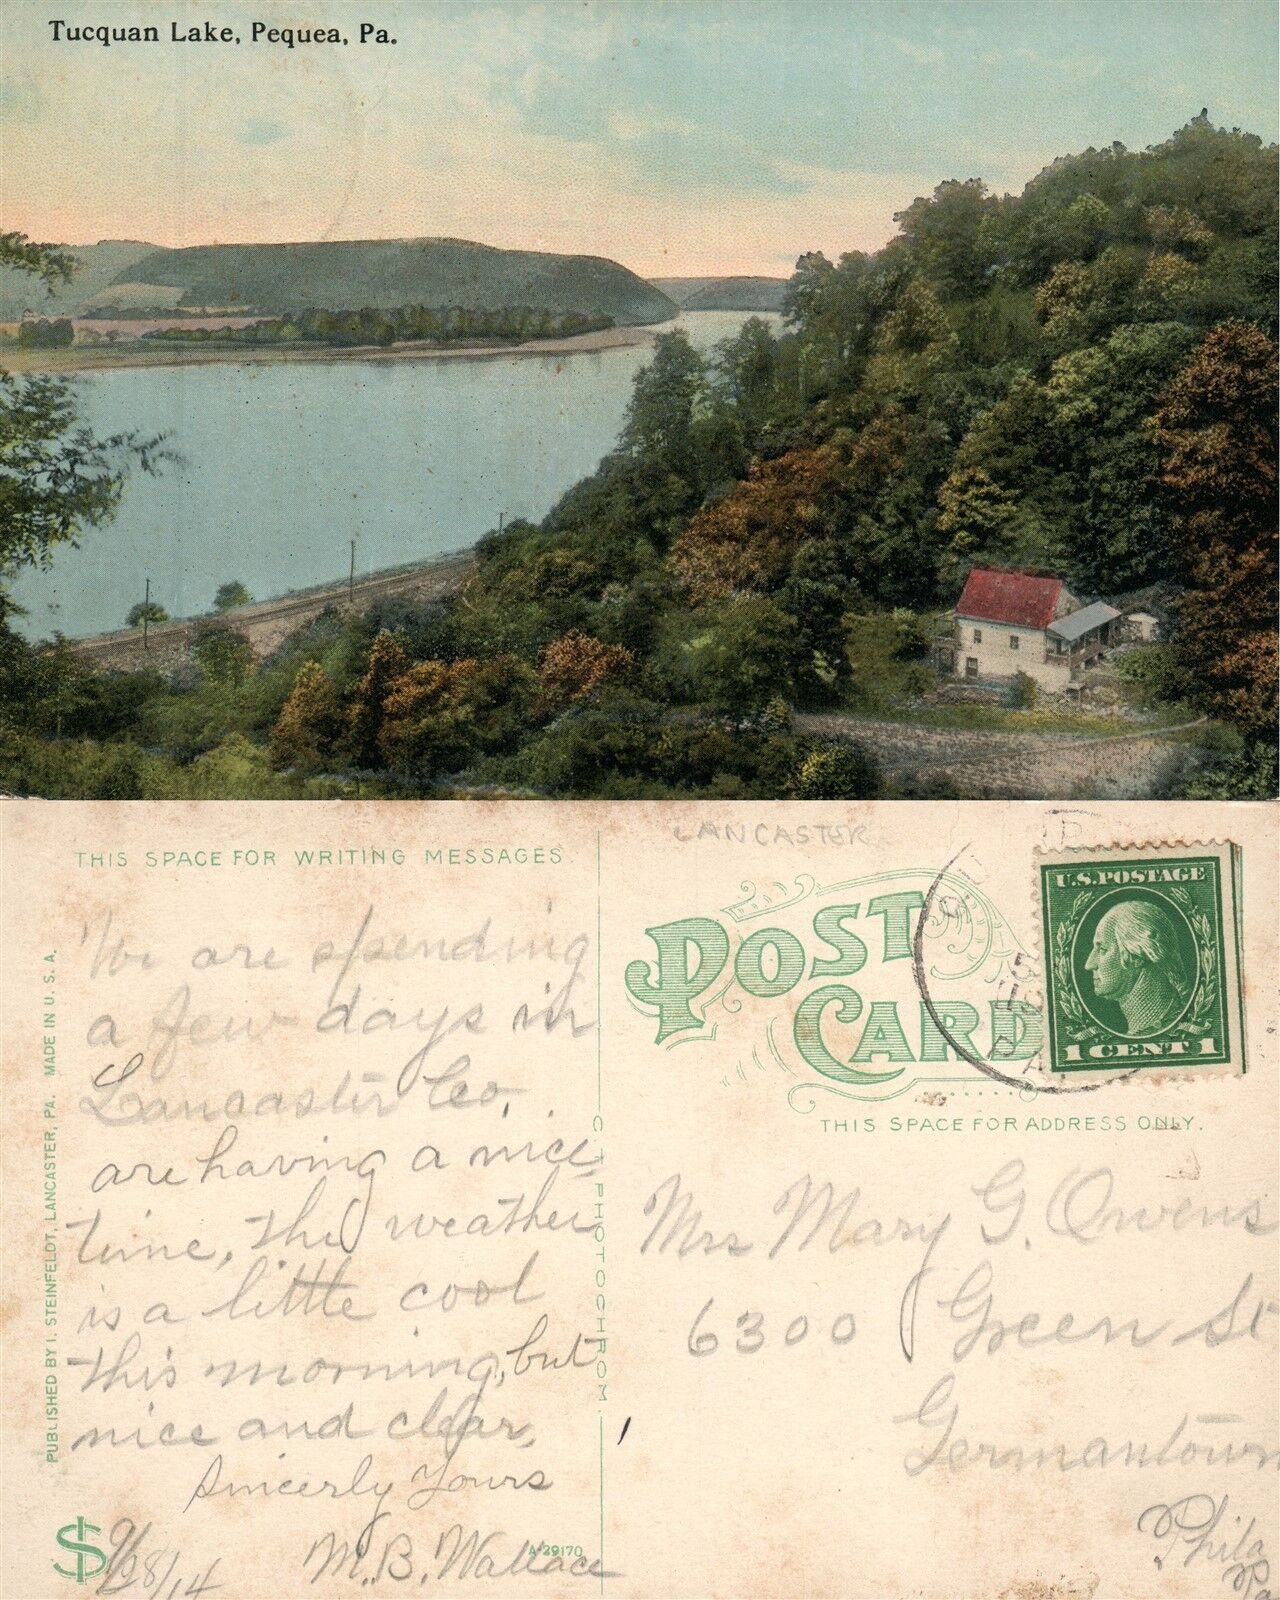 Tucquan Lake, Pequea, Pa.
THIS SPACE FOR WRITING MESSAGES
We are spending
a few days in
Lancaster Co.
are having a nice
time, the weather
is a little cool
this morning, but
nice and clear,
Sincerely Yours
M. B. Wallace
9/28/14
A-39170
PUBLISHED BY I. STEINFELDT, LANCASTER, PA. MADE IN U. S. A.
C. T. PHOTOCHROM
LANCASTER
POST CARD
U.S. POSTAGE
1 CENT 1
PA.
THIS SPACE FOR ADDRESS ONLY.
Mrs Mary G. Owens
6300 Green St
Germantown
Phila
Pa